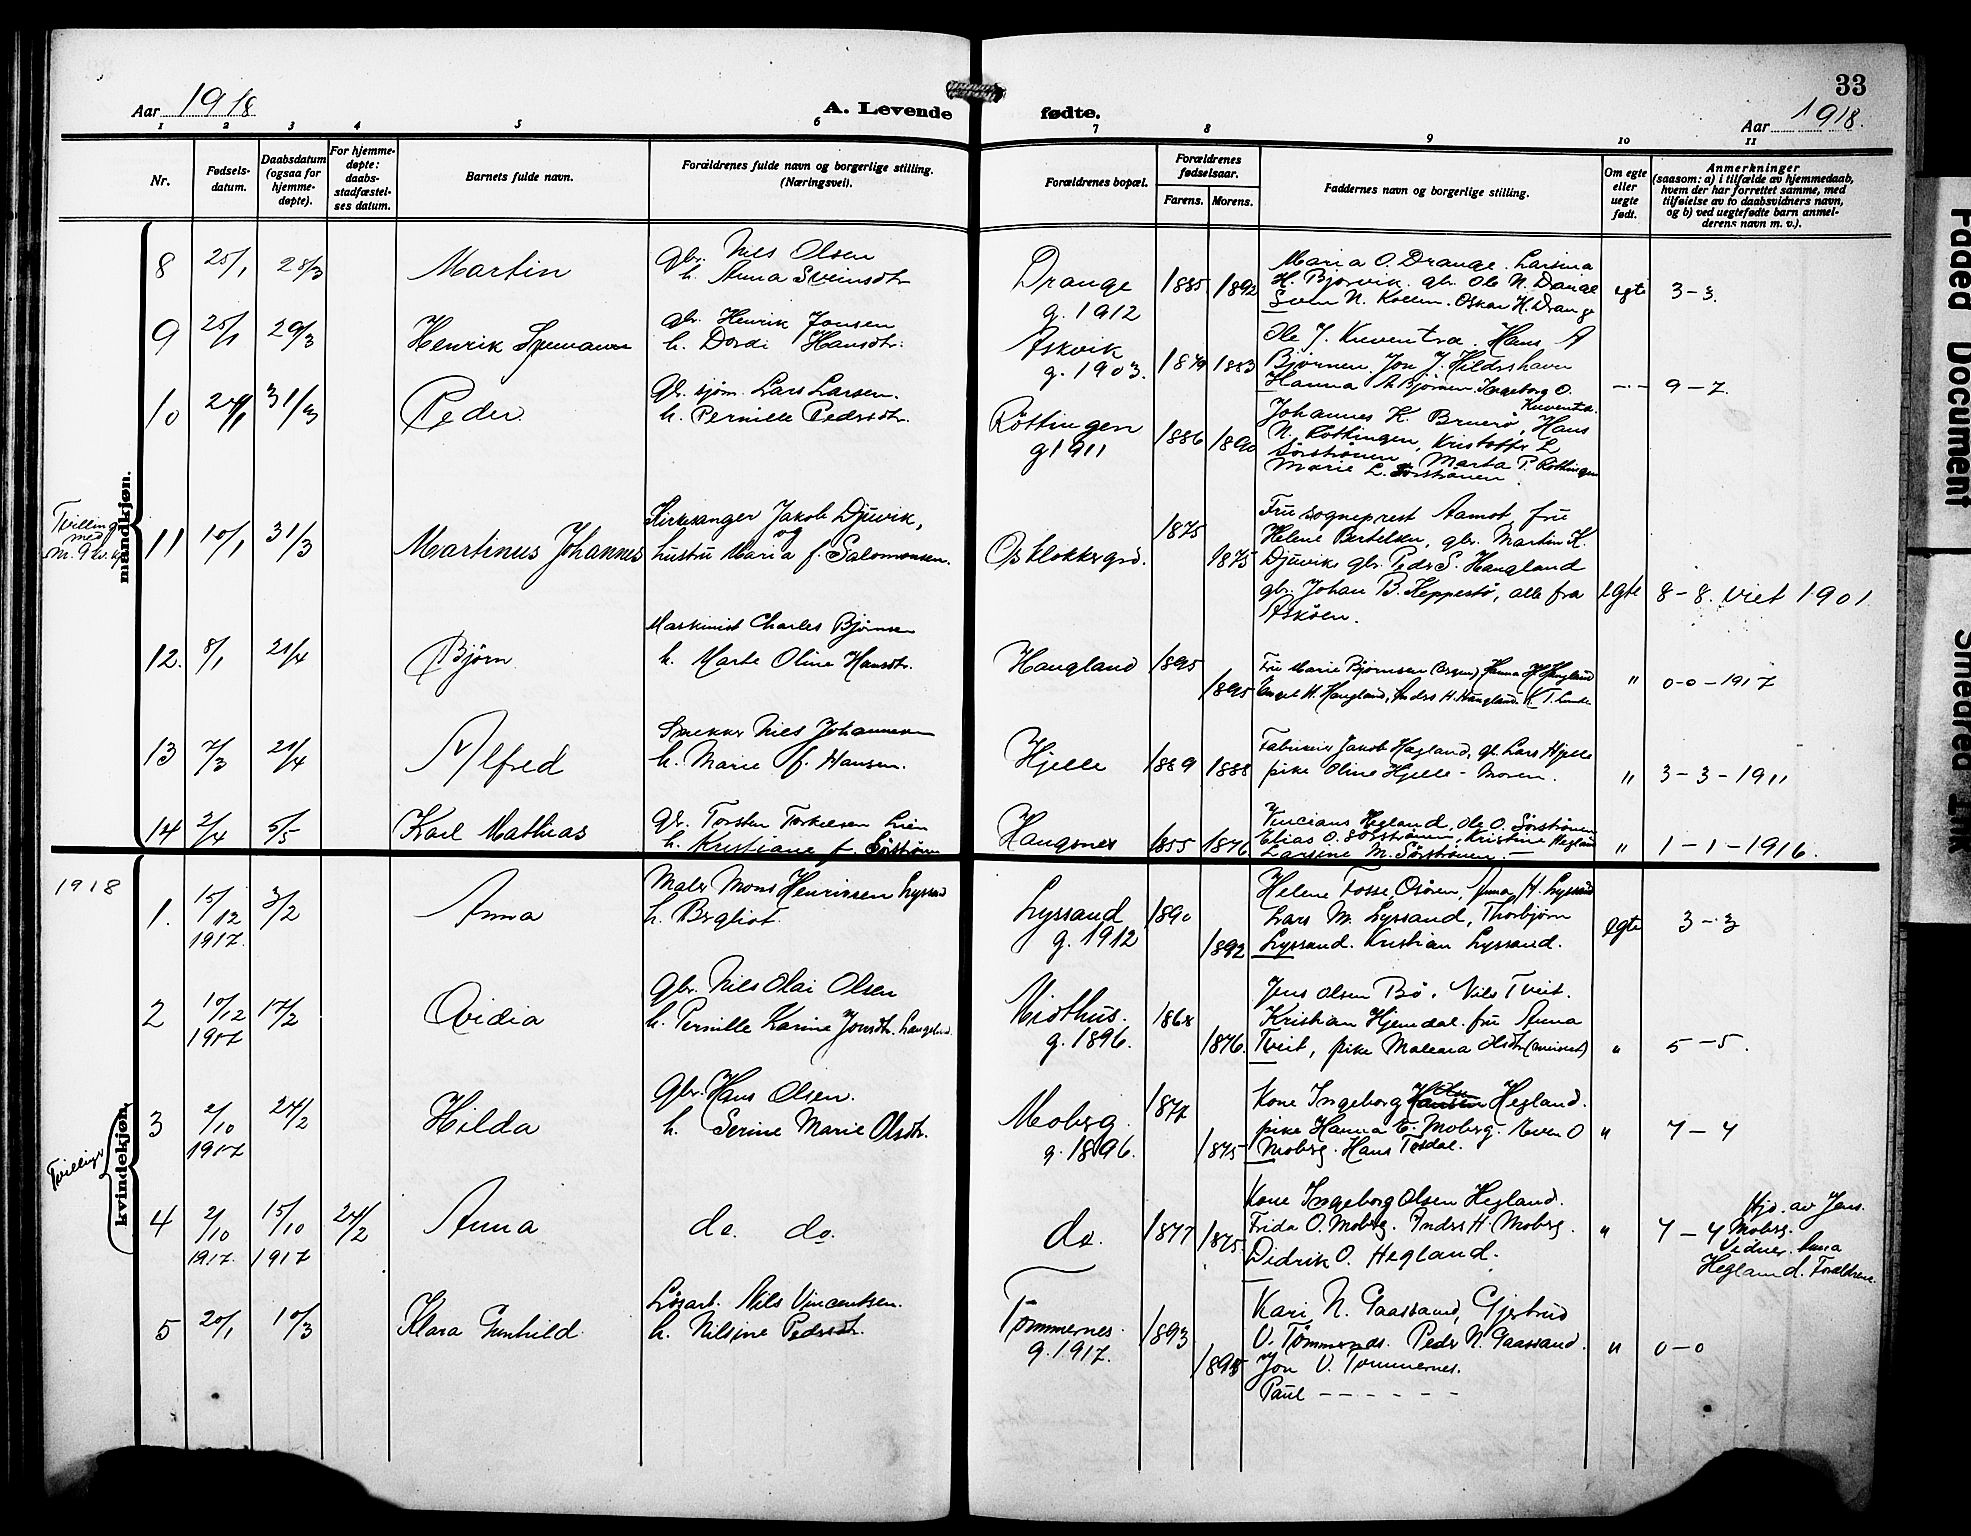 33
Aar 1918
A. Levende fødte.
Aar 1918.
1 2 3 4 5 6 7 8 9 10 11
Nr.
Fødsels-
datum.
Daabsdatum
(ogsaa for
hjemme-
døpte).
For hjemme-
døpte:
daabs-
stadfæstel-
ses datum.
Barnets fulde navn.
Forældrenes fulde navn og borgerlige stilling.
(Næringsvei).
Forældrenes bopæl.
Forældrenes
fødselsaar.
Farens. Morens.
Faddernes navn og borgerlige stilling.
Om egte
eller
uegte
født.
Anmerkninger
(saasom: a) i tilfælde av hjemmedaab,
hvem der har forrettet samme, med
tilføielse av to daabsvidners navn,
og b) ved uegtefødte barn anmel-
derens navn m. v.).
mandkjøn.
8 25/1 28/3 Martin
gbr. Nils Olsen
h. Anna Sveinsdtr
Drange
g. 1912
1885 1892
Maria O. Drange. Larsina
H. Bjørvik. gbr. Ole N. Drange
Sven N. Kollen. Oskar H. Drange
egt 3-3.
9 25/1 29/3 Henrik
gbr. Henrik Jonsen
h. Dordi Hansdtr.
Askvik
g. 1903.
1879 1883
Ole J. Kuventræ. Hans A
Bjørnen, Jon J. Hildershavn
Hanna A Bjørnen. Ingeborg O.
Kuventræ.
-"- 9-7.
10 24/1 31/3 Peder
Gbr. sjøm. Lars Larsen.
h. Pernille Pedersdtr.
Røttingen
g 1911
1886 1890
Johannes K. Bruerø, Hans
N. Røttingen, Kristoffer L
Sørstrønen, Marta P. Røttingen
Marie L. Sørstrønen.
Tvilling
med
nr. 9 kv. kj
11 10/1 31/3 Martinus Johannes
Kirkesanger Jakob Djuvik,
og
hustru Maria f. Salomonsen.
Os klokkergrd.
1875
1875
Fru sogneprest Aamot fru
Helene Bertelsen, gbr. Martin K.
Djuvik gbr. Peder S. Haugland
gbr. Johan B. Keppestø, alle fra
Askøen.
egte 8-8. viet 1901
12. 8/1 21/4 Bjørn
Maskinist Charles Bjørnsen
h. Marte Oline Hansdtr.
Haugland
1895
1895
Fru Marie Bjørnsen (Bergen) Hanna H Haugland
Engel H. Haugland, Anders H. Haugland. K T. Lunde
" 0-0-1917
13 7/3 21/4 Alfred
Snekker Nils Johannesen
h. Marie f. Hansen.
Hjelle
1889 1888
Fabrikeier Jakob Hagland, gb. Lars Hjelle
pike Oline Hjelle - Moren.
" 3-3-1911
14 2/4 5/5 Karl Mathias
Gbr. Torsten Torkelsen Lien
h. Kristiane f. Sørstrønen
Haugsnes
1855 1876
Vincians Hegland, Ole O. Sørstrønen
Elias O. Sørstrønen, Kristine Hegland
Larsine M. Sørstrønen.
" 1-1-1916.
1918
kvindekjøn.
1. 15/12 1917 3/2 Anna
Maler Mons Henriksen Lyssand
h. Bergliot.
Lyssand
g. 1912
1890
1892
Helene Fosse, Osøren, Anna H. Lyssand
Lars M. Lyssand, Thorbjørn
Lyssand. Kristian Lyssand.
egte 3-3
2 10/12 1917 17/2 Ovidia
gbr. Nils Olai Olsen
h. Pernille Karine Jonsdtr.
Midthus.
g. 1896.
1868
1876.
Jens Olsen Bø. Nils Tveit.
Kristian Hjemdal. fru Anna
Tveit, pike Malena Olsdtr
" 5-5.
Tvillinger
3 2/10 1917 24/2 Hilda
gbr. Hans Olsen.
h. Serine Marie Olsdtr.
Moberg
g. 1896.
1877
1875
Kone Ingeborg Hansen Olsen Hegland.
pike Hanna E. Moberg. Sven O
Moberg. Hans Tøsdal.
" 7-4
4 2/10 1917. 15/10 1917 24/2 Anna
do. do.
do.
1877 1875.
Kone Ingeborg Olsen Hegland.
Frida O. Moberg. Anders H. Moberg.
Didrik O. Hegland.
" 7-4
Hjd. av Jens
Moberg.
Vidner. Anna
Hegland. Forældrene.
5 20/1 10/3 Klara Gunhild
Løsarb. Nils Vincentsen.
h. Nilsine Pedersdtr.
Tømmernes.
g. 1917.
1893
1895
Kari N. Gaassand, Gjertrud
V. Tømmernes. Peder N. Gaassand.
Jon V. Tømmernes.
Paul - - - - - -
" 0-0
Faded Document
Smeared Ink